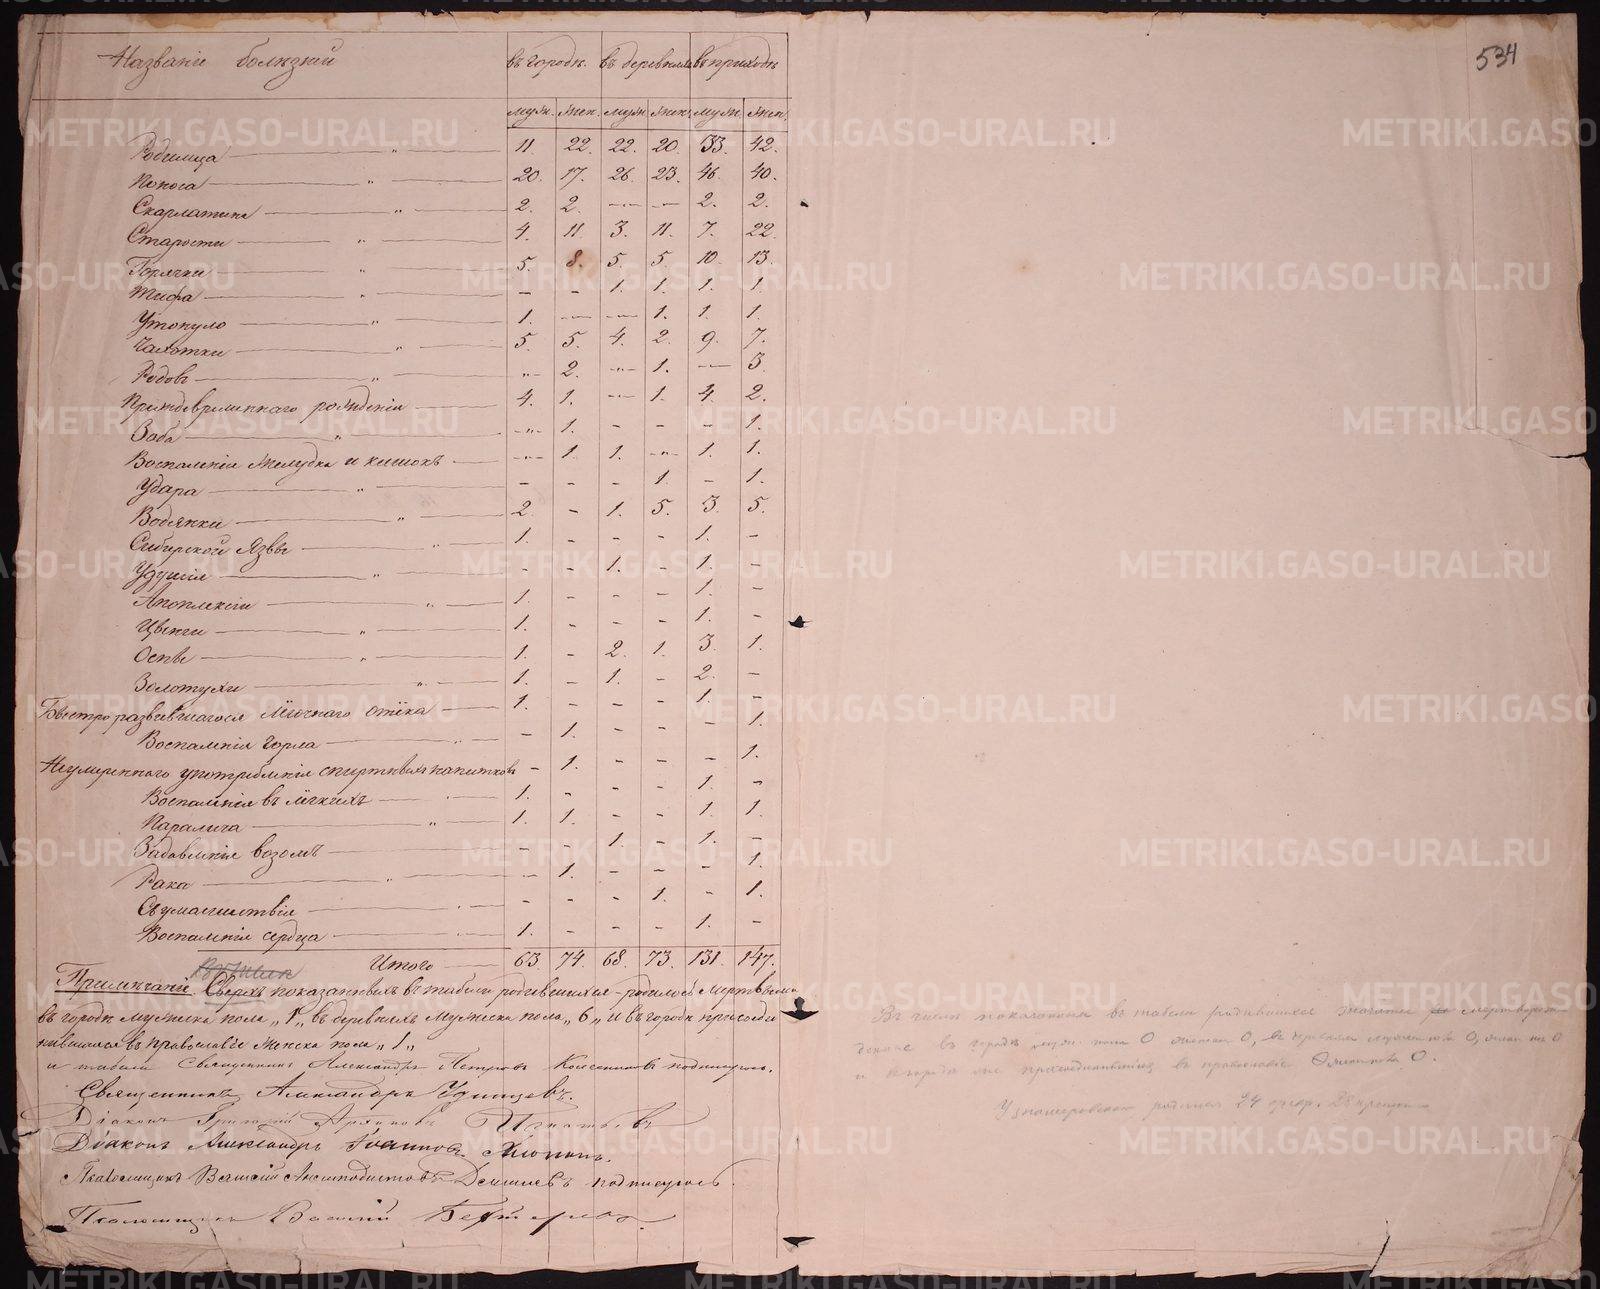 534
Названіе болѣзней въ городѣ. въ деревняхъ въ приходѣ
муж. жен. муж. жен. муж. жен.
Родимца — „ — 11 22. 22. 20. 33. 42.
Поноса — „ — 20. 17. 26. 23. 46. 40.
Скарлатины — „ — 2. 2. — — 2. 2.
Старости — „ — 4. 11 3. 11. 7. 22.
Горячки — „ — 5. 8. 5. 5 10. 13.
Тифа — „ — - - 1. 1. 1. 1.
Утонуло — „ — 1. — — 1. 1. 1.
Чахотки — „ — 5. 5. 4. 2. 9. 7.
Родовъ — „ — -„- 2. -„- 1. — 3.
Преждевременнаго рожденія — 4. 1. — 1. 4. 2.
Зоба — „ — -„- 1. - - - 1.
Воспаленія желудка и кишокъ — -„- 1 1. -„- 1. 1.
Удара — „ — - - - 1. - 1.
Водянки — „ — 2. - 1. 5. 3. 5.
Сибирской Язвы — „ — 1. - - - 1. -
Удушія — „ — - - 1. - 1. -
Апоплексіи — „ — 1. - - - 1. -
Цынги — „ — 1. - - - 1. -
Оспы — „ — 1. - 2. 1. 3. 1.
Золотухи — „ — 1. - 1. - 2. -
Быстро развившагося лёгочнаго отёка — 1. - - - 1. -
Воспаленія горла — „ — - 1. - - - 1.
Неумѣреннаго употребленія спиртныхъ напитковъ - 1. - - - 1.
Воспаленія въ лёгкихъ — 1. - - - 1. -
Паралича — „ — 1. 1. - - 1. 1.
Задавленія возомъ — - - 1. - 1. -
Рака — „ — - 1. - - - 1.
Съумасшествія — - - - 1. - 1.
Воспаленія сердца — 1. - - - 1. -
Итого — 63. 74. 68. 73. 131. 147.
Примѣчаніе. Сверхъ показанныхъ въ табели родившихся – родилось мертвыми
въ городѣ мужеска пола „1„ въ деревняхъ мужеска пола „6„ и въ городѣ присоеди
нившаяся въ православіе женска пола „1„
и табели Священникъ Александръ Петровъ подписуюсь.
Священникъ Александръ Удинцевъ.
Діаконъ Григорій Игнатьевъ
Діаконъ Александръ Іоанновъ
Псаломщикъ Василій подписуюсь.
Псаломщикъ Василій
Въ числѣ показанныхъ въ табели родившихся мертворож
денные въ городѣ муж. пола 0 женска 0, въ деревняхъ 0, 0
и въ городѣ присоединившихся въ православіе 0.
METRIKI.GASO-URAL.RU